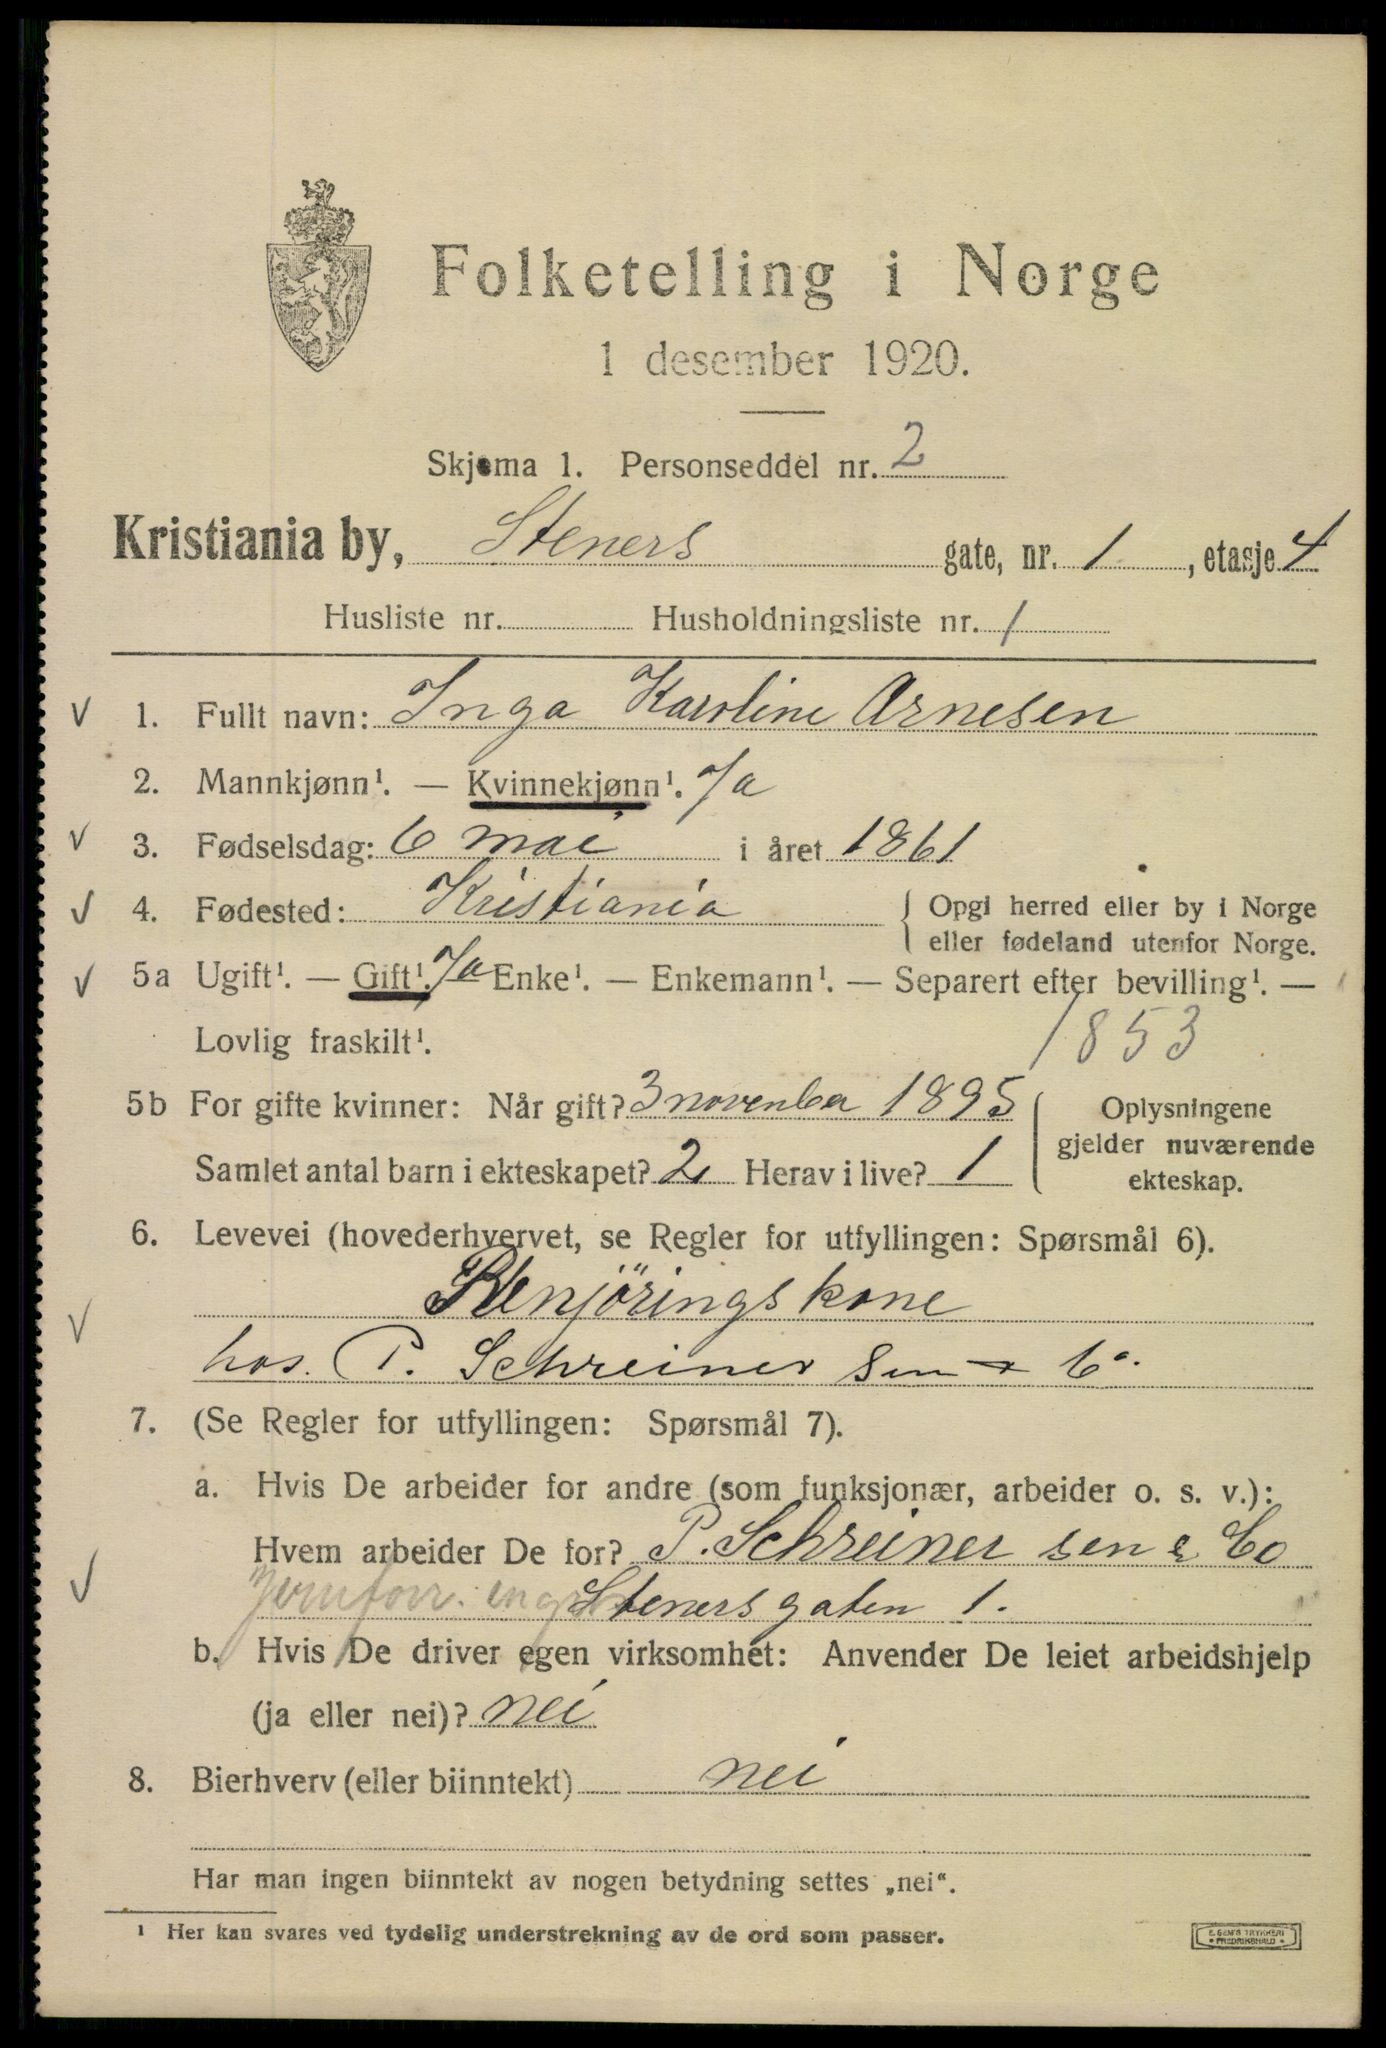 Folketelling i Norge
1 desember 1920.
Skjema 1. Personseddel nr. 2
Kristiania by, Steners gate, nr. 1, etasje 4
Husliste nr. Husholdningsliste nr. 1
1. Fullt navn: Inga Karoline Arnesen
2. Mannkjønn¹. — Kvinnekjønn¹. Ja
3. Fødselsdag: 6 mai i året 1861
4. Fødested: Kristiania { Opgi herred eller by i Norge
eller fødeland utenfor Norge.
5a Ugift¹. — Gift¹. Ja — Enke¹. — Enkemann¹. — Separert efter bevilling¹. —
Lovlig fraskilt¹. 1853
5b For gifte kvinner: Når gift? 3 november 1895 { Oplysningene
gjelder nuværende
Samlet antal barn i ekteskapet? 2 Herav i live? 1 ekteskap.
6. Levevei (hovederhvervet, se Regler for utfyllingen: Spørsmål 6).
Renjöringskone
hos. P. Schreiner sen + Co.
7. (Se Regler for utfyllingen: Spørsmål 7).
a. Hvis De arbeider for andre (som funksjonær, arbeider o. s. v.):
Hvem arbeider De for? P. Schreiner sen & Co
Jernforr. engr. Stenersgaten 1.
b. Hvis De driver egen virksomhet: Anvender De leiet arbeidshjelp
(ja eller nei)? nei
8. Bierhverv (eller biinntekt) nei
Har man ingen biinntekt av nogen betydning settes „nei“.
¹ Her kan svares ved tydelig understrekning av de ord som passer.
E. SEM'S TRYKKERI
• FREDRIKSHALD •